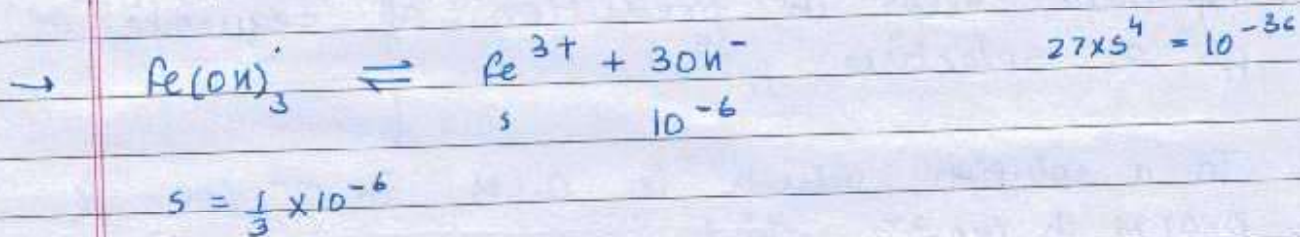 → Fe(OH)₃ ⇌ Fe³⁺ + 3OH⁻ 27×s⁴ = 10⁻³⁶
s 10⁻⁶
s = 1/3 × 10⁻⁶